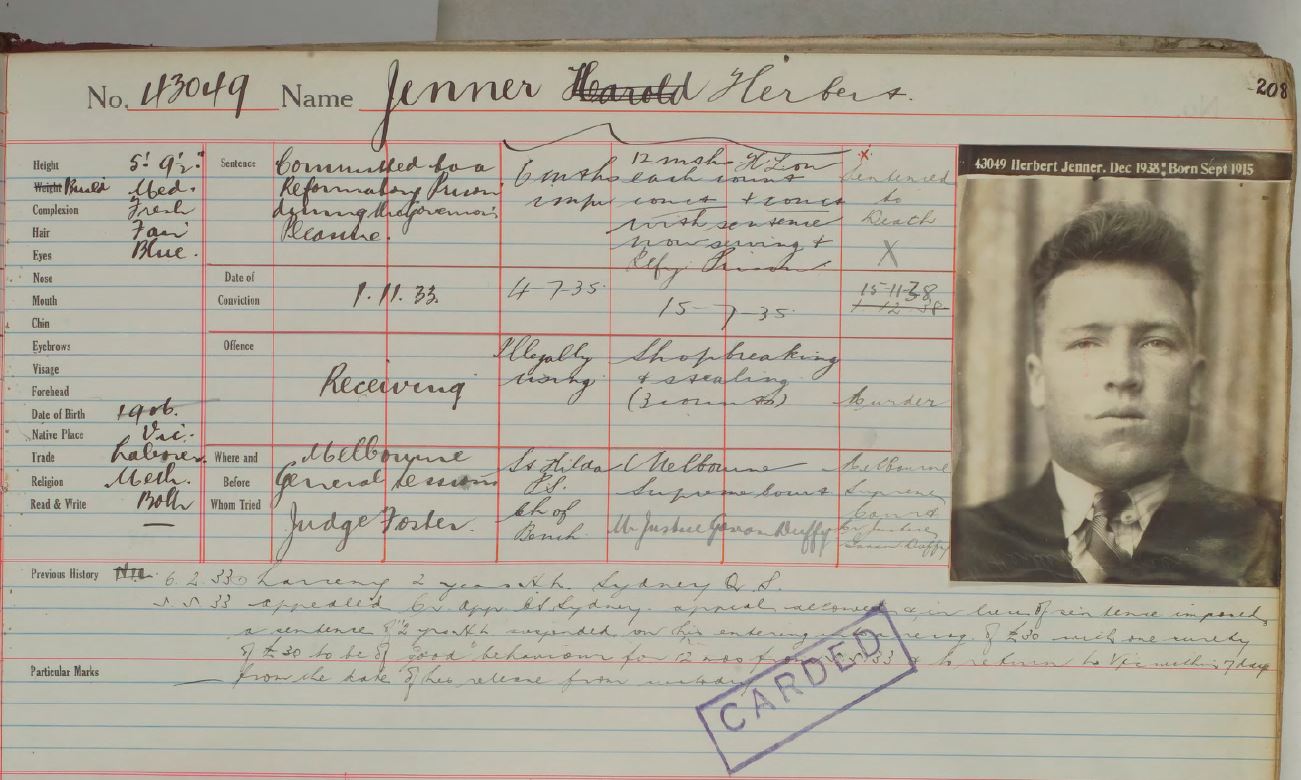 No. 43049 Name Jenner Harold Herbert. 208
Height 5' 9½"
Weight Build Med.
Complexion Fresh
Hair Fair
Eyes Blue.
Nose
Mouth
Chin
Eyebrows
Visage
Forehead
Date of Birth 1906.
Native Place Vic.
Trade Laborer.
Religion Meth.
Read & Write Both
Sentence
Committed to a
Reformatory Prison
during the Governor's
Pleasure.
6 mths
impr
12 mths H. Lbr
each count
conct + conct
with sentence
now serving +
Refy. Prison
Sentenced
to
Death
X
Date of
Conviction
1.11.33.
4-7-35.
15-7-35.
15-11-38
1-12-38
Offence
Receiving
Illegally
using
Shopbreaking
& stealing
(3 counts)
Murder
Where and
Before
Whom Tried
Melbourne
General Sessions
Judge Foster.
St Kilda
P.S.
Ch of
Bench.
Melbourne
Supreme Court
Mr Justice Gavan Duffy
Melbourne
Supreme
Court
Mr Justice
Gavan Duffy
43049 Herbert Jenner. Dec 1938. Born Sept 1915
Previous History Nil. 6.2.33 Larceny 2 years H.L. Sydney Q.S.
5.5.33 appealed Cr. App. Ct Sydney. appeal allowed & in lieu of sentence imposed
a sentence of 2 yrs H.L. suspended on his entering recog. of £30 with one surety
of £30 to be of good behaviour for 12 mos from & to return to Vic within 7 days
Particular Marks from the date of his release from custody
CARDED